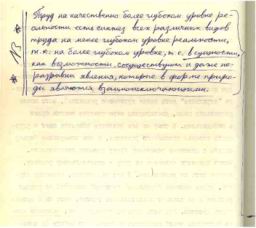 Труд на качественно более глубоком уровне ре-
альности есть синтез всех различных видов
труда на менее глубоком уровне реальности,
т.к. на более глубоком уровне, т.е. в сущности,
как возможности сосуществуют и даже не-
разрывны явления, которые в форме приро-
ды являются взаимоисключающими.